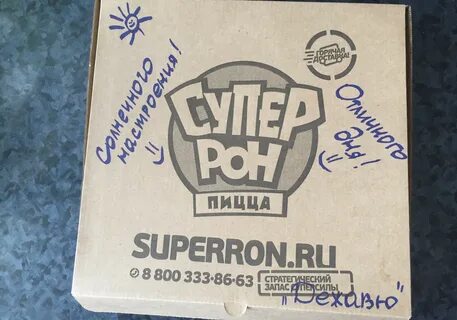 Солнечного
настроения!
ГОРЯЧАЯ
ДОСТАВКА!
СУПЕР
РОН
ПИЦЦА
Отличного
дня!
SUPERRON.RU
8 800 333-86-63
СТРАТЕГИЧЕСКИЙ
ЗАПАС СУПЕРСИЛЫ
„Дехавю"